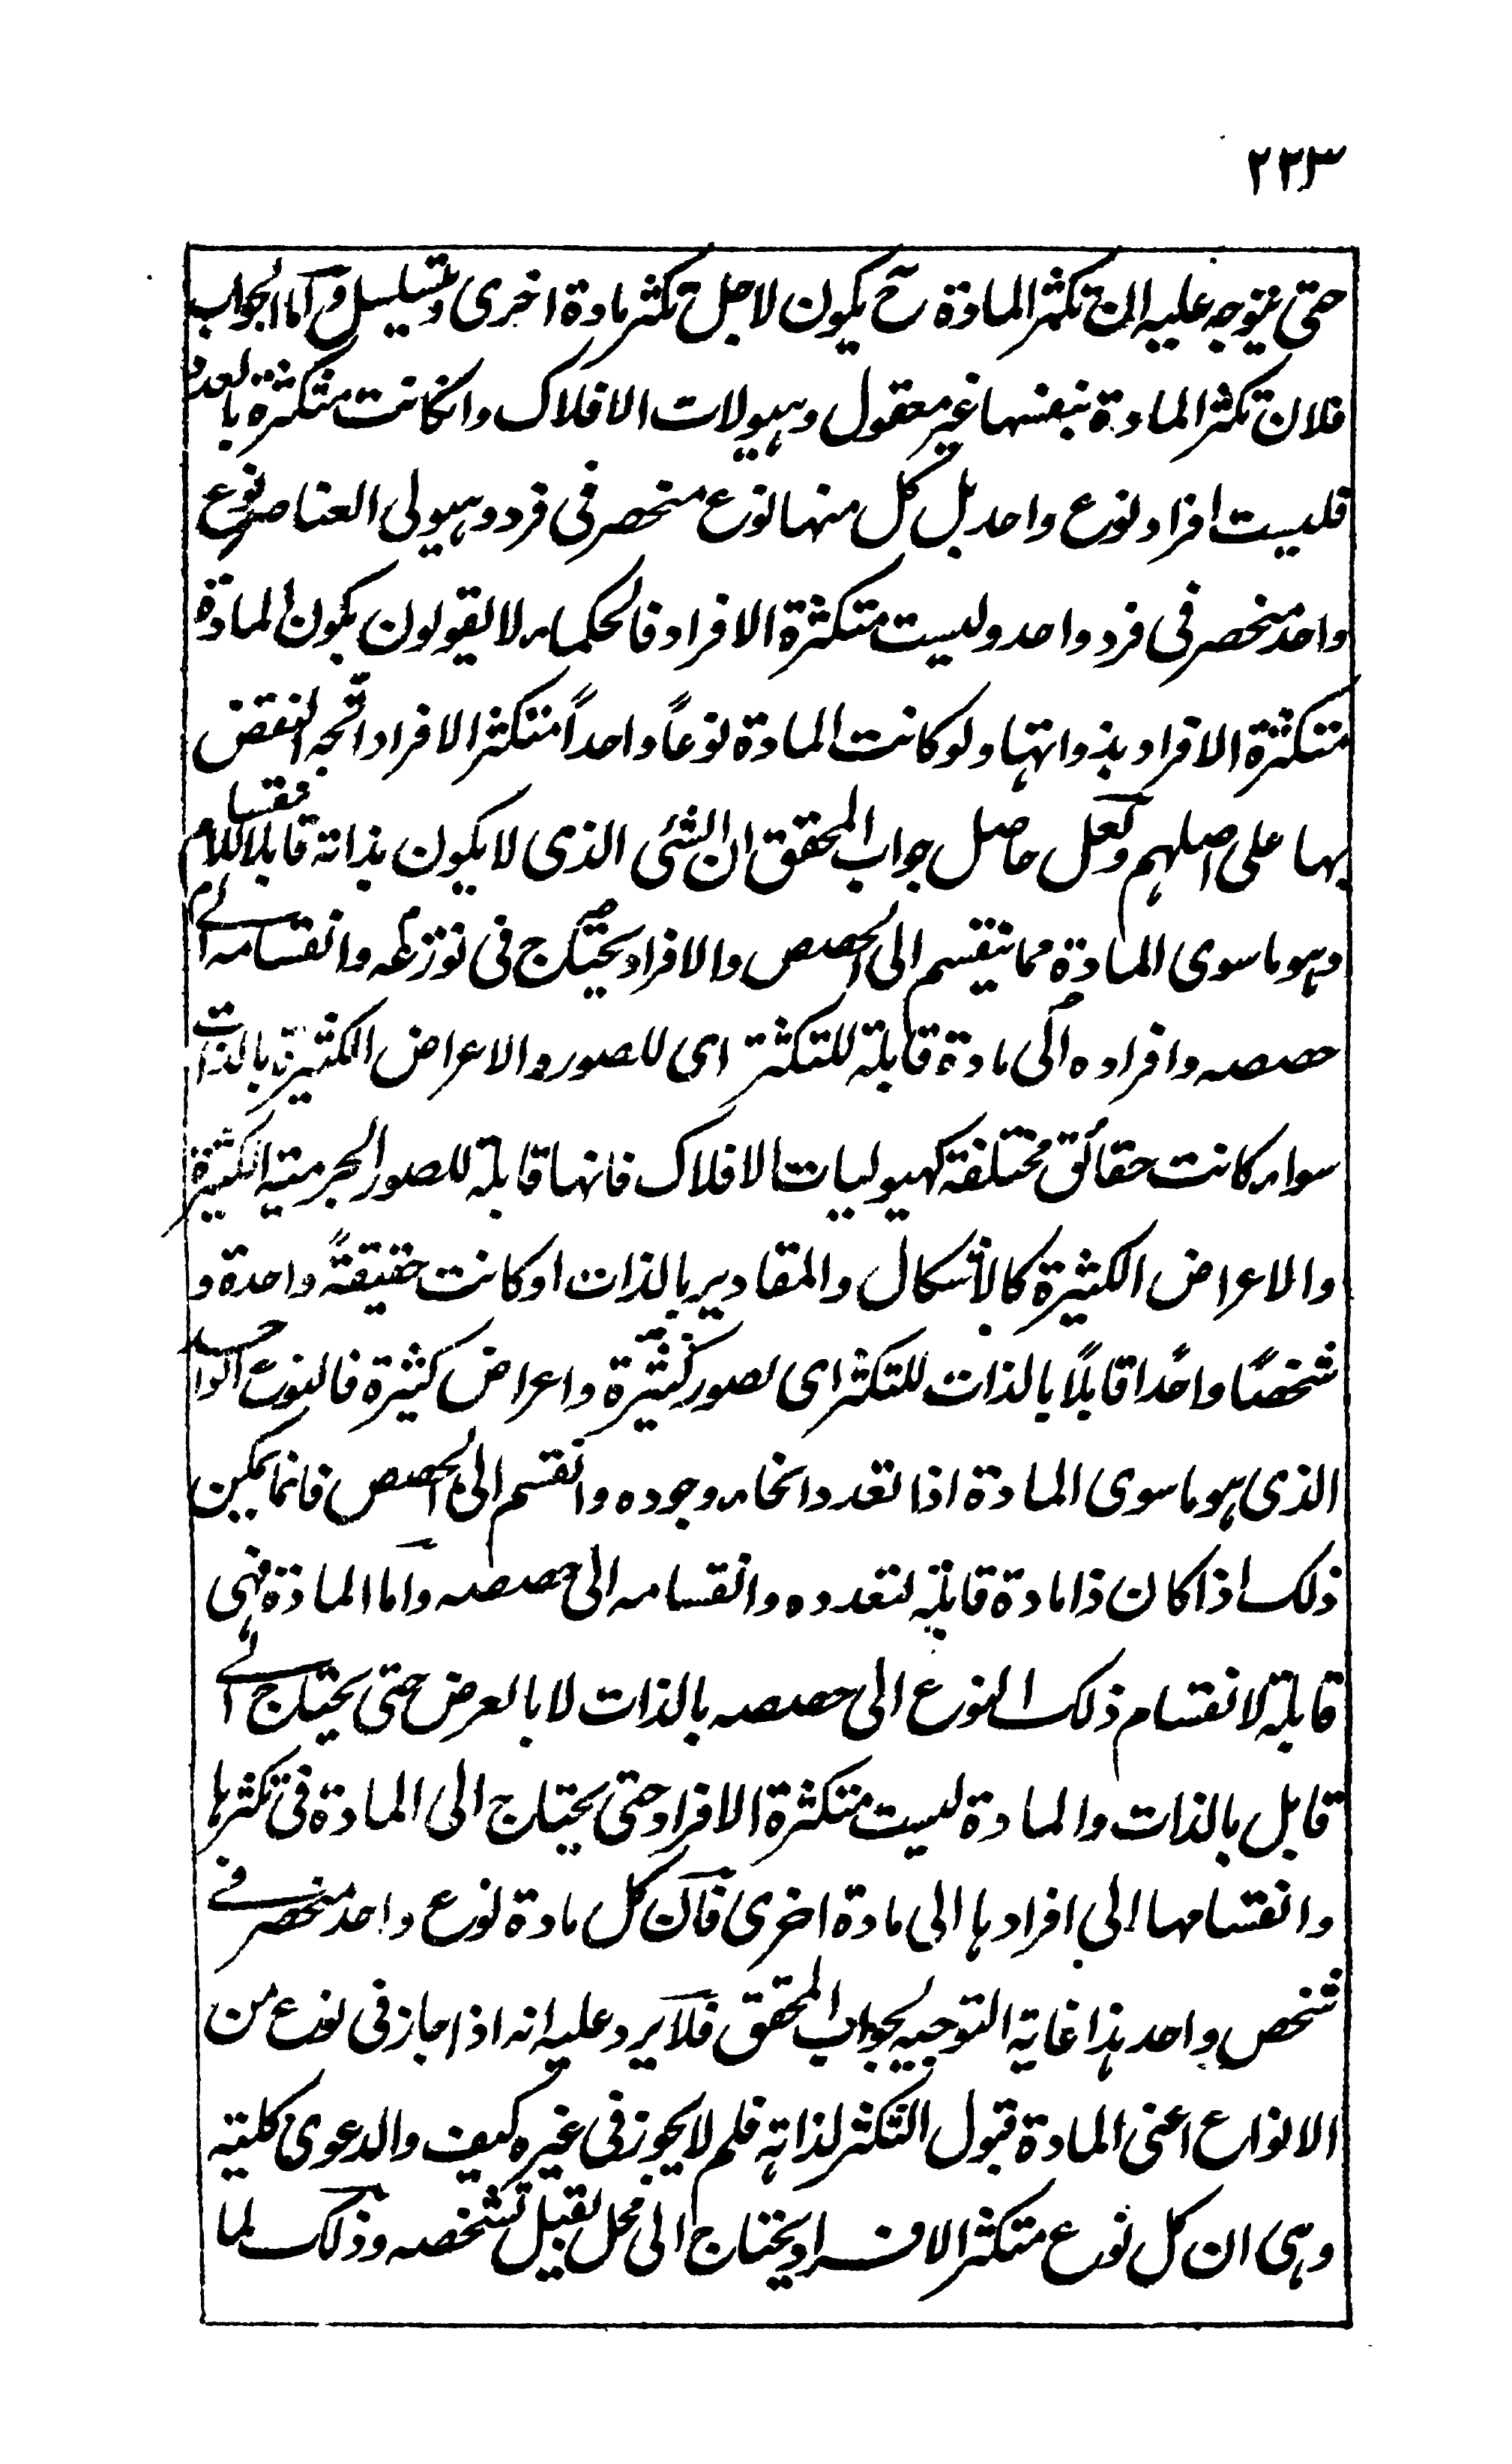 ٢٢٣
حتى يتوجه عليه ان تكثر المادة ح يكون لاجل تكثر مادة اخرى ويتسلسل واما الجواب
فلان تكثر المادة بنفسها غير معقول وهيولات الافلاك وانكانت متكثرة بالعدد
فليست افراد نوع واحد بل كل منها نوع منحصر فى فرد وهيولى العناصر نوع
واحد منحصر فى فرد واحد وليست متكثرة الافراد فالحكماء لا يقولون بكون المادة
متكثرة الافراد بذواتها ولو كانت المادة نوعاً واحداً متكثر الافراد اتجه النقض
بها على اصلهم ولعل حاصل جواب المحقق ان الشئ الذى لا يكون بذاته قابلا للانقسام
وهو ما سوى المادة مما ينقسم الى الحصص والافراد يحتاج فى توزعه وانقسامه الى
حصصه وافراده الى مادة قابلة للتكثر اى للصور والاعراض الكثيرة بالذات
سواء كانت حقائق مختلفة كهيوليات الافلاك فانها قابلة للصور الجرمية الكثيرة
والاعراض الكثيرة كالاشكال والمقادير بالذات او كانت حقيقةً واحدة و
شخصًا واحدًا قابلاً بالذات للتكثر اى لصور كثيرة واعراض كثيرة فالنوع الواحد
الذى هو ما سوى المادة اذا تعدد انحاء وجوده وانقسم الى الحصص فانما يمكن
ذلك اذا كان ذا مادة قابلة لتعدده وانقسامه الى حصصه واما المادة فهى
قابلة لانقسام ذلك النوع الى حصصه بالذات لا بالعرض حتى يحتاج الى
قابل بالذات والمادة ليست متكثرة الافراد حتى يحتاج الى المادة فى تكثرها
وانقسامها الى افرادها الى مادة اخرى فان كل مادة نوع واحد منحصر فى
شخص واحد هذا غاية التوجيه لجواب المحقق فلا يرد عليه انه اذا جاز فى نوع من
الانواع اعنى المادة قبول التكثر لذاته فلم لا يجوز فى غيره كيف والدعوى كلية
وهى ان كل نوع متكثر الافراد يحتاج الى محل يقبل تشخصه وذلك لما